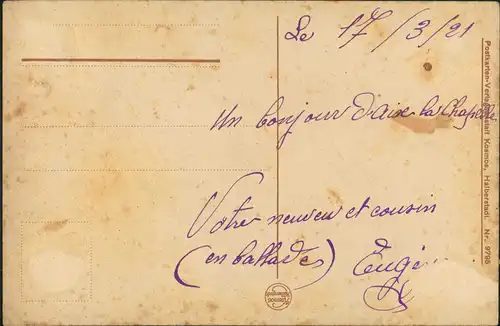 Le 17/3/21
Un bonjour d'aix la Chapelle
Votre neuveu et cousin
(en ballades) Eugè
Postkarten-Verlagsanstalt Kosmos, Halberstadt. Nr. 9796